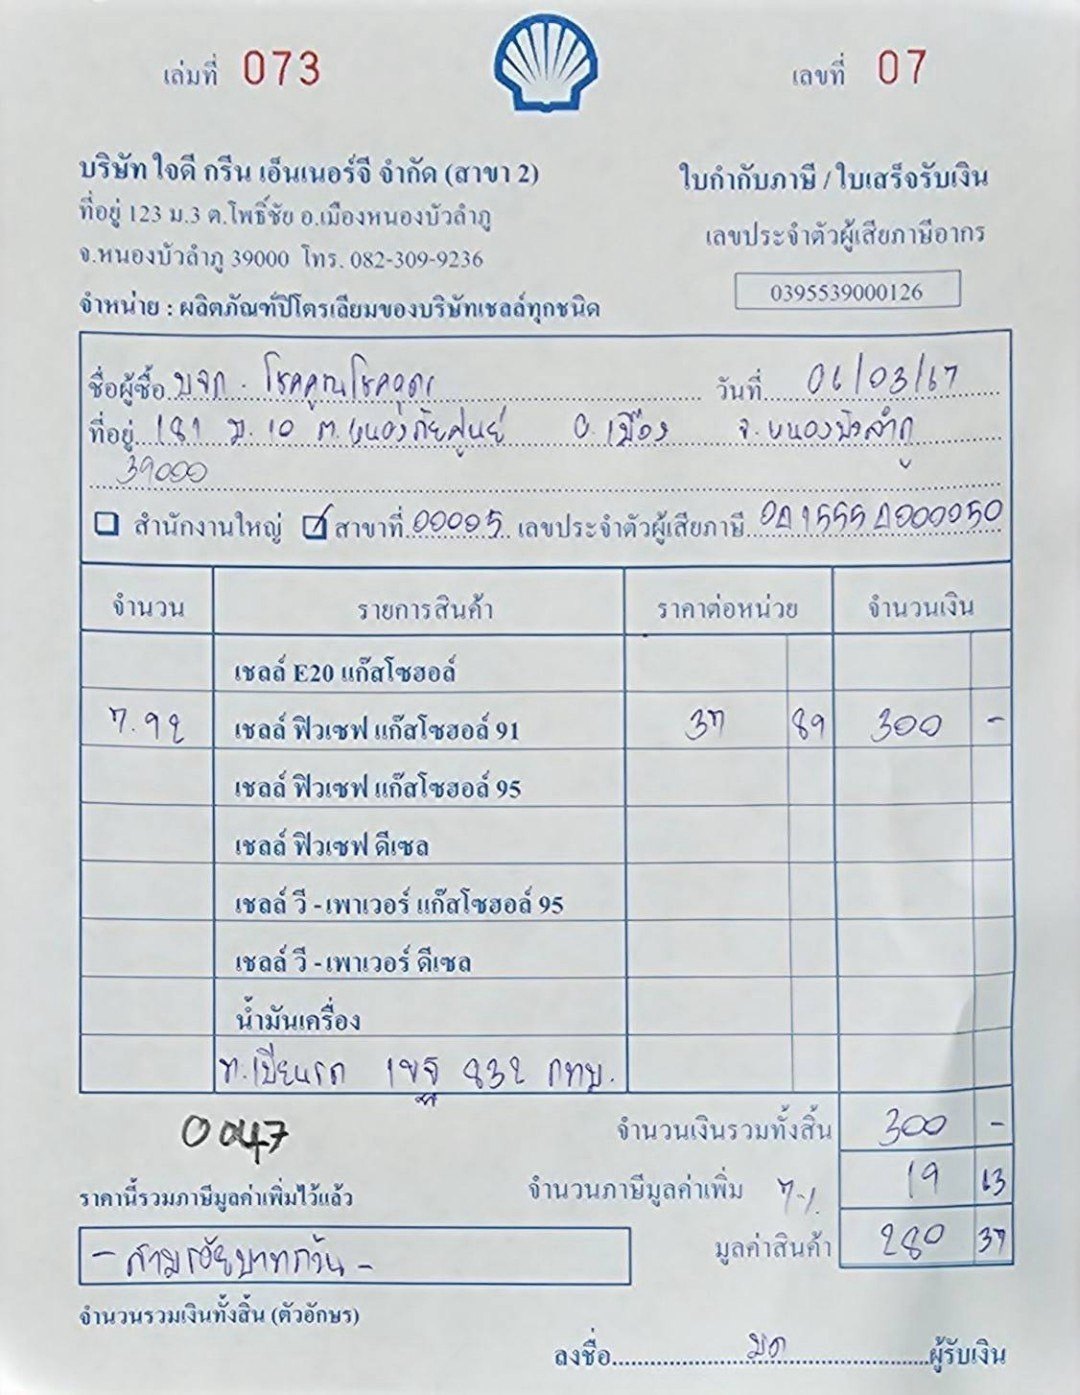 เล่มที่ 073
เลขที่ 07
บริษัท ใจดี กรีน เอ็นเนอร์จี จำกัด (สาขา 2)
ใบกำกับภาษี / ใบเสร็จรับเงิน
ที่อยู่ 123 ม.3 ต.โพธิ์ชัย อ.เมืองหนองบัวลำภู
เลขประจำตัวผู้เสียภาษีอากร
จ.หนองบัวลำภู 39000 โทร. 082-309-9236
0395539000126
จำหน่าย : ผลิตภัณฑ์ปิโตรเลียมของบริษัทเชลล์ทุกชนิด
ชื่อผู้ซื้อ บจก. โชคคูณโชคอุดร วันที่ 06/03/67
ที่อยู่ 181 ม.10 ต.หนองภัยศูนย์ อ.เมือง จ.หนองบัวลำภู
39000
สำนักงานใหญ่ สาขาที่ 00005 เลขประจำตัวผู้เสียภาษี
จำนวน รายการสินค้า ราคาต่อหน่วย จำนวนเงิน
เชลล์ E20 แก๊สโซฮอล์
7.92 เชลล์ ฟิวเซฟ แก๊สโซฮอล์ 91 37 89 300 -
เชลล์ ฟิวเซฟ แก๊สโซฮอล์ 95
เชลล์ ฟิวเซฟ ดีเซล
เชลล์ วี - เพาเวอร์ แก๊สโซฮอล์ 95
เชลล์ วี - เพาเวอร์ ดีเซล
น้ำมันเครื่อง
ท.เบียนรถ 1ขฐ 832 กทม.
0047
จำนวนเงินรวมทั้งสิ้น 300 -
ราคานี้รวมภาษีมูลค่าเพิ่มไว้แล้ว
จำนวนภาษีมูลค่าเพิ่ม 7% 19 63
- สามร้อยบาทถ้วน -
มูลค่าสินค้า 280 37
จำนวนรวมเงินทั้งสิ้น (ตัวอักษร)
ลงชื่อ ผู้รับเงิน